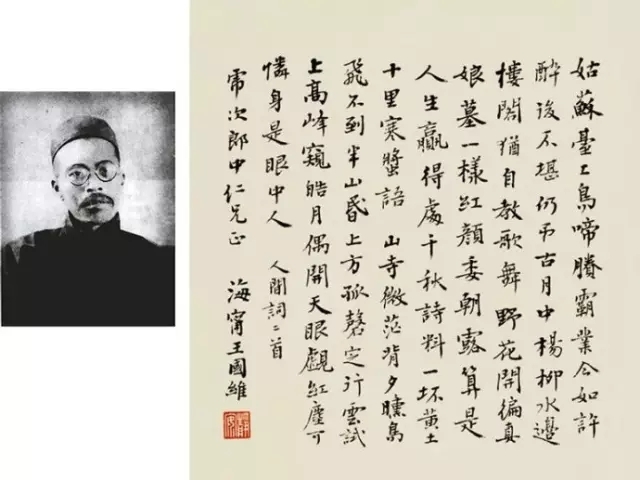 姑蘇臺上烏啼賸霸業今如許
醉後不堪仍弔古月中楊柳水邊
樓閣猶自教歌舞 野花開徧真
娘墓一樣紅顏委朝露算是
人生贏得處千秋詩料一坏黃土
十里寒螿語 山寺微茫背夕曛鳥
飛不到半山昏上方孤磬定行雲試
上高峰窺皓月偶開天眼覷紅塵可
憐身是眼中人 人間詞二首
次郎中仁兄正 海甯王國維